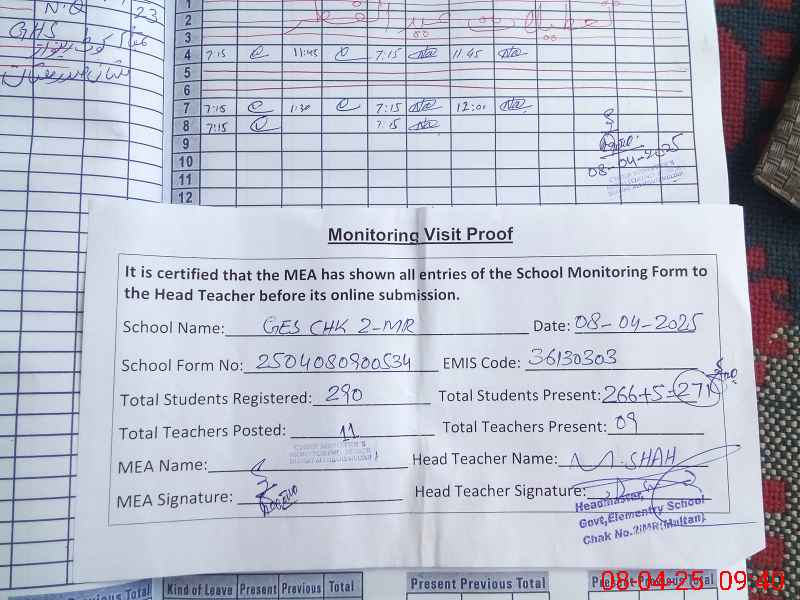 N.O 23
GHS
1
2
3
4 7:15 11:45 7:15 11:45
5
6
7 7:15 1:30 7:15 12:01
8 7:15 7:15
9
10
11
12
08-04-2025
Monitoring Visit Proof
It is certified that the MEA has shown all entries of the School Monitoring Form to
the Head Teacher before its online submission.
School Name: GES CHK 2-MR Date: 08-04-2025
School Form No: 2504080900534 EMIS Code: 36130303
Total Students Registered: 290 Total Students Present: 266+5=271
Total Teachers Posted: 11 Total Teachers Present: 09
MEA Name: Head Teacher Name: M.SHAH
MEA Signature: Head Teacher Signature:
Headmaster,
Govt,Elementry School
Chak No.2/MR(Multan)
Previous Total Kind of Leave Present Previous Total Present Previous Total Present Previous Total
08-04-25 09:40